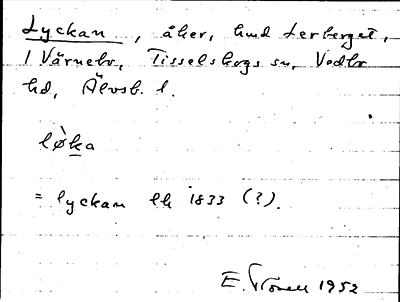 Lyckan, åker, hmd Lerberget,
1 Värnebo, Tisselskogs sn, Vedbo
hd, Älvsb. l.
lø̀ka
= lyckan Lh 1833 (?).
E. 1952